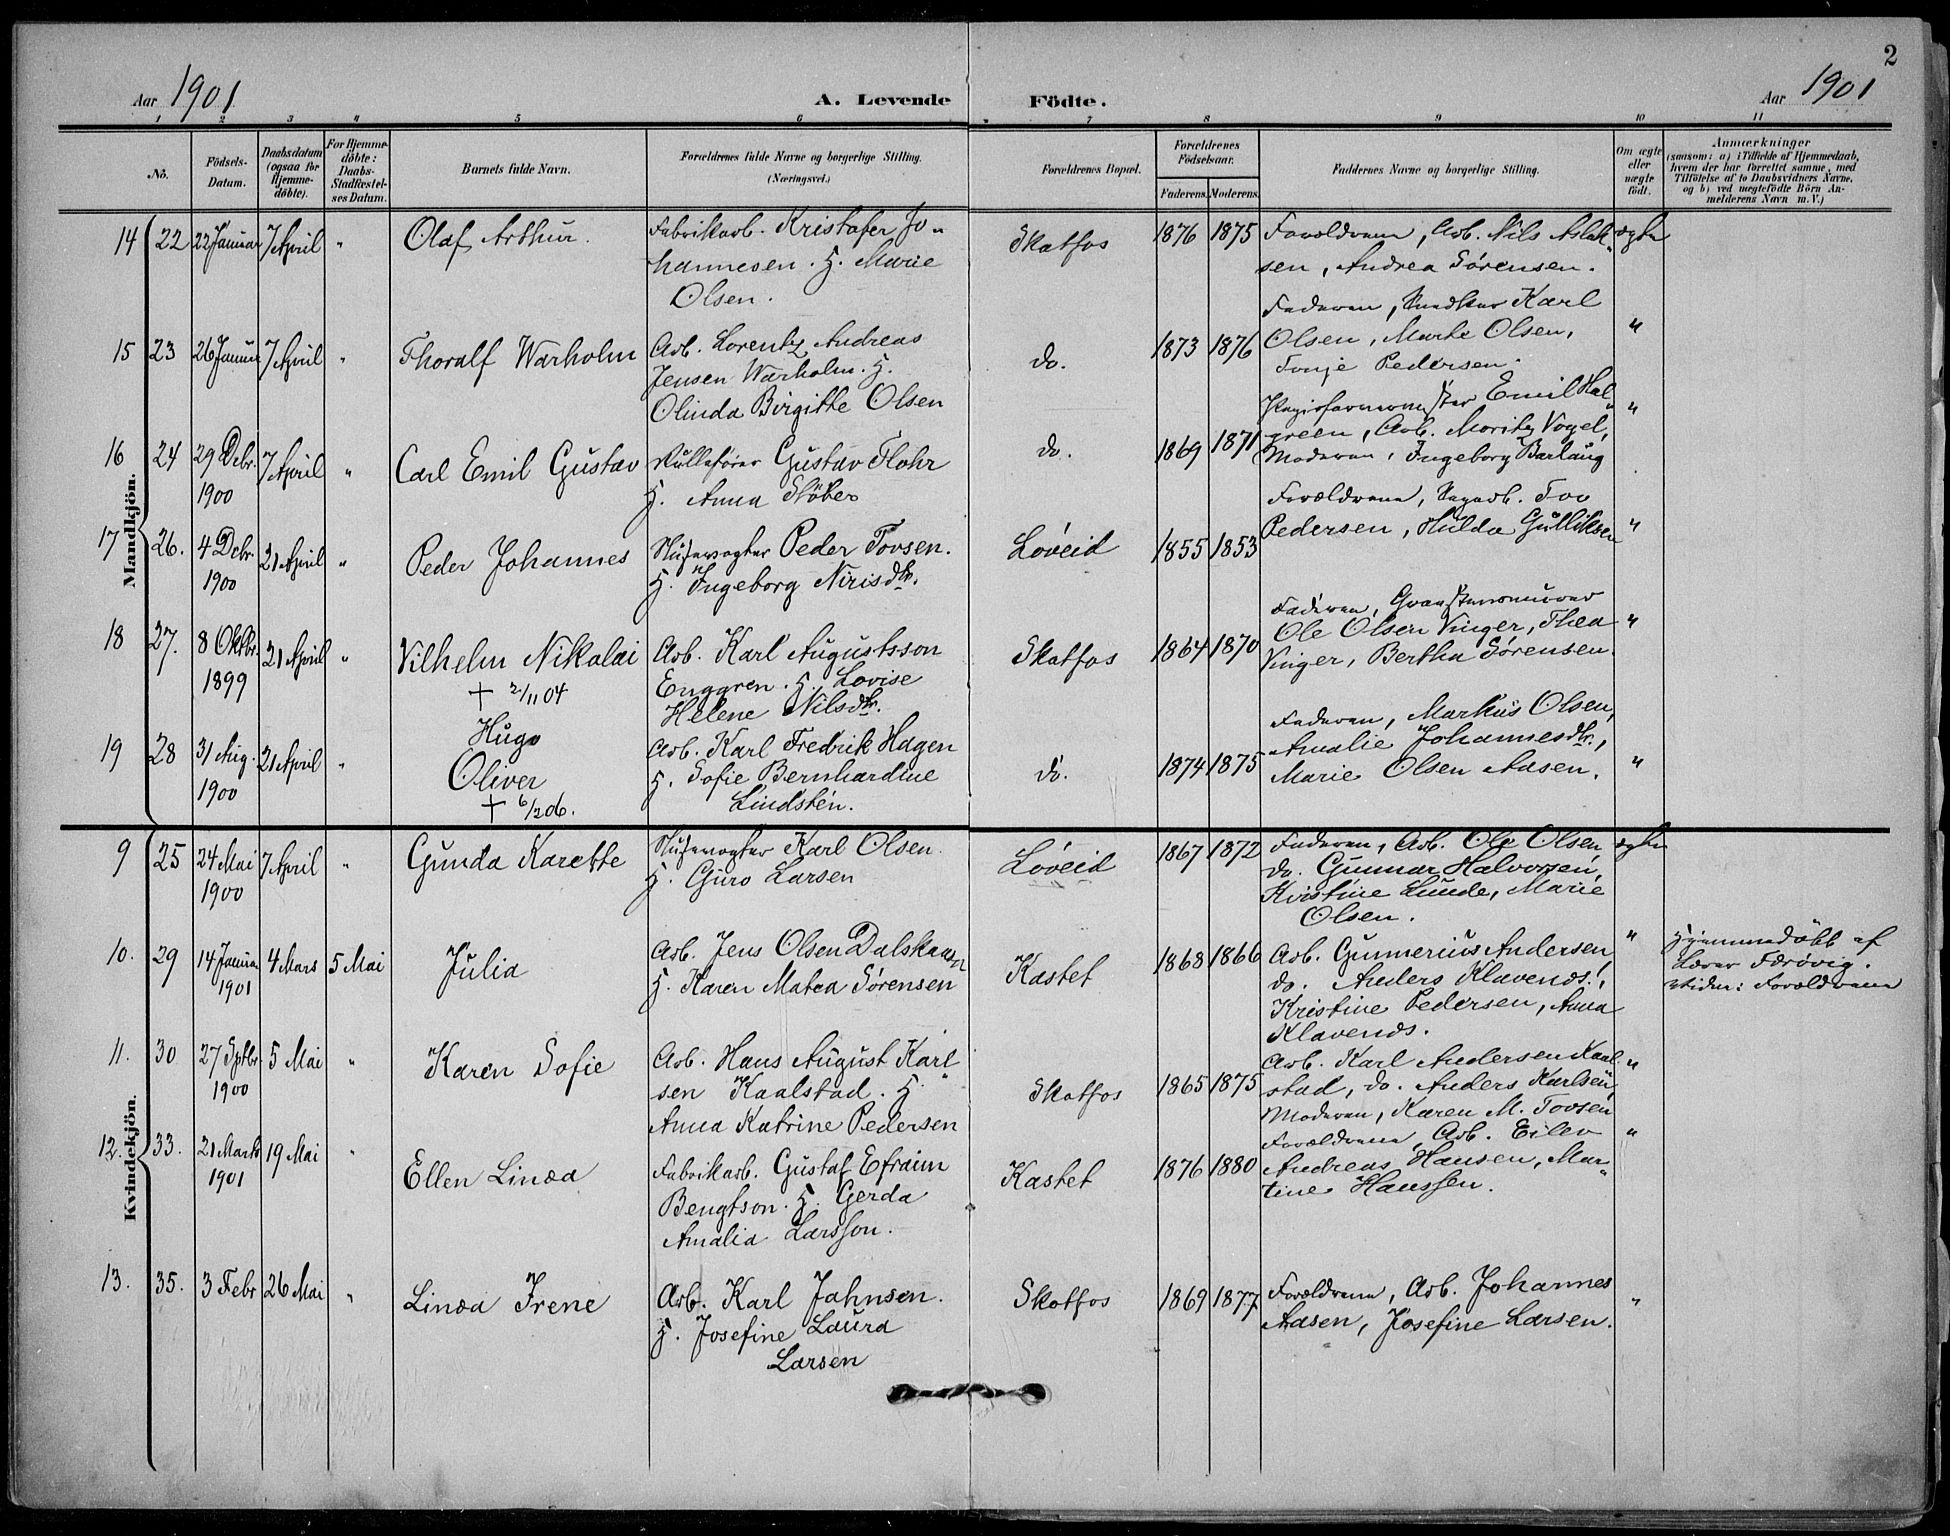 2
Aar 1901
A. Levende Födte.
Aar 1901
1 2 3 4 5 6 7 8 9 10 11
No.
Födsels-
Datum.
Daabsdatum
(ogsaa for
Hjemme-
döbte).
For Hjemme-
döbte:
Daabs-
Stadfæstel-
ses Datum.
Barnets fulde Navn.
Forældrenes fulde Navne og borgerlige Stilling.
(Næringsvei.)
Forældrenes Bopæl.
Forældrenes
Födselsaar.
Faderens. Moderens.
Faddernes Navne og borgerlige Stilling.
Om ægte
eller
uægte
født.
Anmærkninger
(saasom: a) i Tilfælde af Hjemmedaab,
hvem der har forrettet samme, med
Tilföielse af to Daabsvidners Navne,
og b) ved uægtefödte Börn An-
melderens Navn m. V.)
Mandkjön.
14 22 22 Januar 7 April " Olaf Arthur.
Fabrikarb. Kristofer Jo-
hannesen. H. Marie
Olsen.
Skotfos 1876 1875
Forældrene, Arb. Nils Aslak-
sen, Andrea Sörensen.
ægte
15 23 26 Januar 7 April " Thoralf Warholm
Arb. Lorentz Andreas
Jensen Warholm. H.
Olinda Birgitte Olsen
do. 1873 1876
Faderen, Snedker Karl
Olsen, Marte Olsen,
Tonje Pedersen.
"
16 24 29 Debr. 1900 7 April " Carl Emil Gustav
Rullefører Gustav Flohr
H. Anna Stöber
do. 1869 1871
Emil Hal-
green, Arb. Moritz Vogel,
Moderen, Ingeborg Barlaug
"
17 26. 4 Debr. 1900 21 April " Peder Johannes
Slusevogter Peder Tovsen.
H. Ingeborg Nirisdtr.
Löveid 1855 1853
Forældrene, Tov
Pedersen, Hulda Gulliksen
"
18 27. 8 Oktbr. 1899 21 April " Vilhelm Nikolai
† 2/11 04
Arb. Karl Augustsson
Enggren. H. Lovise
Helene Nilsdtr.
Skotfos 1864 1870
Faderen,
Ole Olsen Vinger, Thea
Vinger, Bertha Sörensen.
"
19 28 31 Aug. 1900 21 April " Hugo
Oliver
† 6/2 06.
Arb. Karl Fredrik Hagen
H. Sofie Bernhardine
Lindstén.
do. 1874 1875
Faderen, Markus Olsen,
Amalie Johannesdtr.,
Marie Olsen Aasen.
"
Kvindekjön.
9 25 24 Mai 1900 7 April " Gunda Karette
Slusevogter Karl Olsen.
H. Guro Larsen
Löveid 1867 1872
Faderen, Arb. Ole Olsen,
do. Gunnar Halvorsen,
Kristine Lunde, Marie
Olsen.
ægte
10. 29 14 Januar 1901 4 Mars 5 Mai Julia
Arb. Jens Olsen Dalskaasen
H. Karen Matea Sörensen
Kastet 1868 1866
Arb. Gunnerius Andersen
do. Anders Klavends.,
Kristine Pedersen, Anna
Klavends.
"
Hjemmedöbt af
Lærer Færövig.
Vidner: Forældrene
11. 30 27 Sptbr. 1900 5 Mai " Karen Sofie
Arb. Hans August Karl-
sen Kaalstad. H.
Anna Katrine Pedersen
Skotfos 1865 1875
Arb. Karl Andersen Kaal-
stad, do. Anders Karlsen,
Moderen, Karen M. Tovsen
"
12. 33. 21 Marts 1901 19 Mai " Ellen Linæa
Fabrikarb. Gustaf Efraim
Bengtson. H. Gerda
Amalia Larsson.
Kastet 1876 1880
Forældrene, Arb. Eilev
Andreas Hansen, Mar-
tine Hanssen.
"
13. 35. 3 Febr 26 Mai " Linæa Irene
Arb. Karl Jahnsen.
H. Josefine Laura
Larsen
Skotfos 1869 1877
Forældrene, Arb. Johannes
Aasen, Josefine Larsen.
"